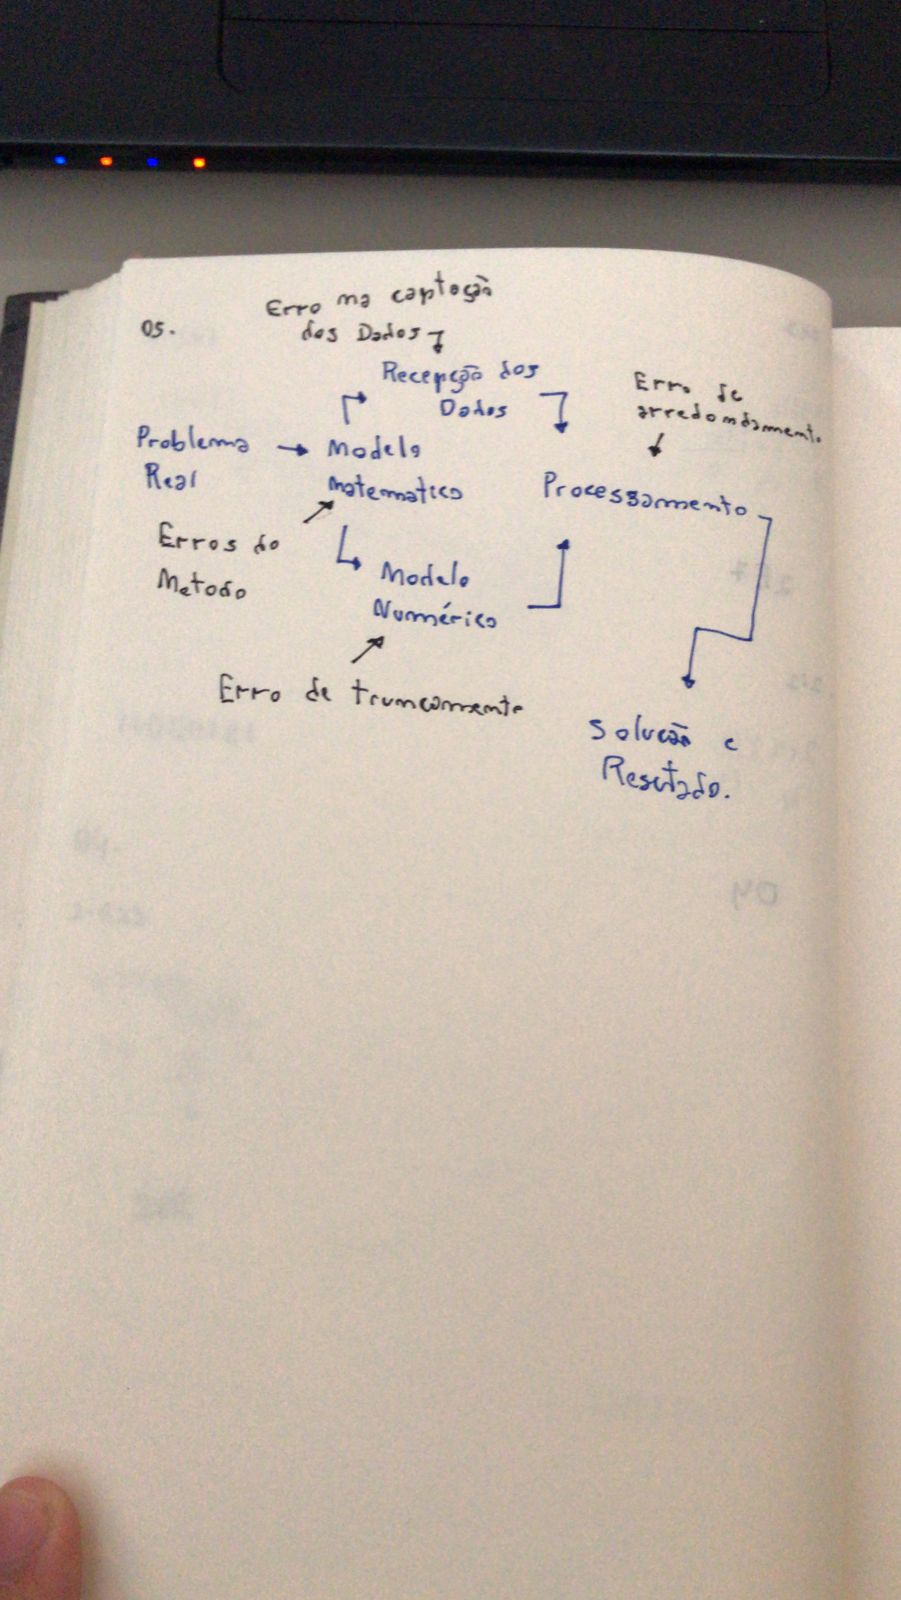 05.
Erro na captação
dos Dados
Recepção dos
Dados
Erro de
arredondamento
Problema
Real
Modelo
matematico
Processamento
Erros do
Metodo
Modelo
Numérico
Erro de truncamento
Solução e
Resutado.